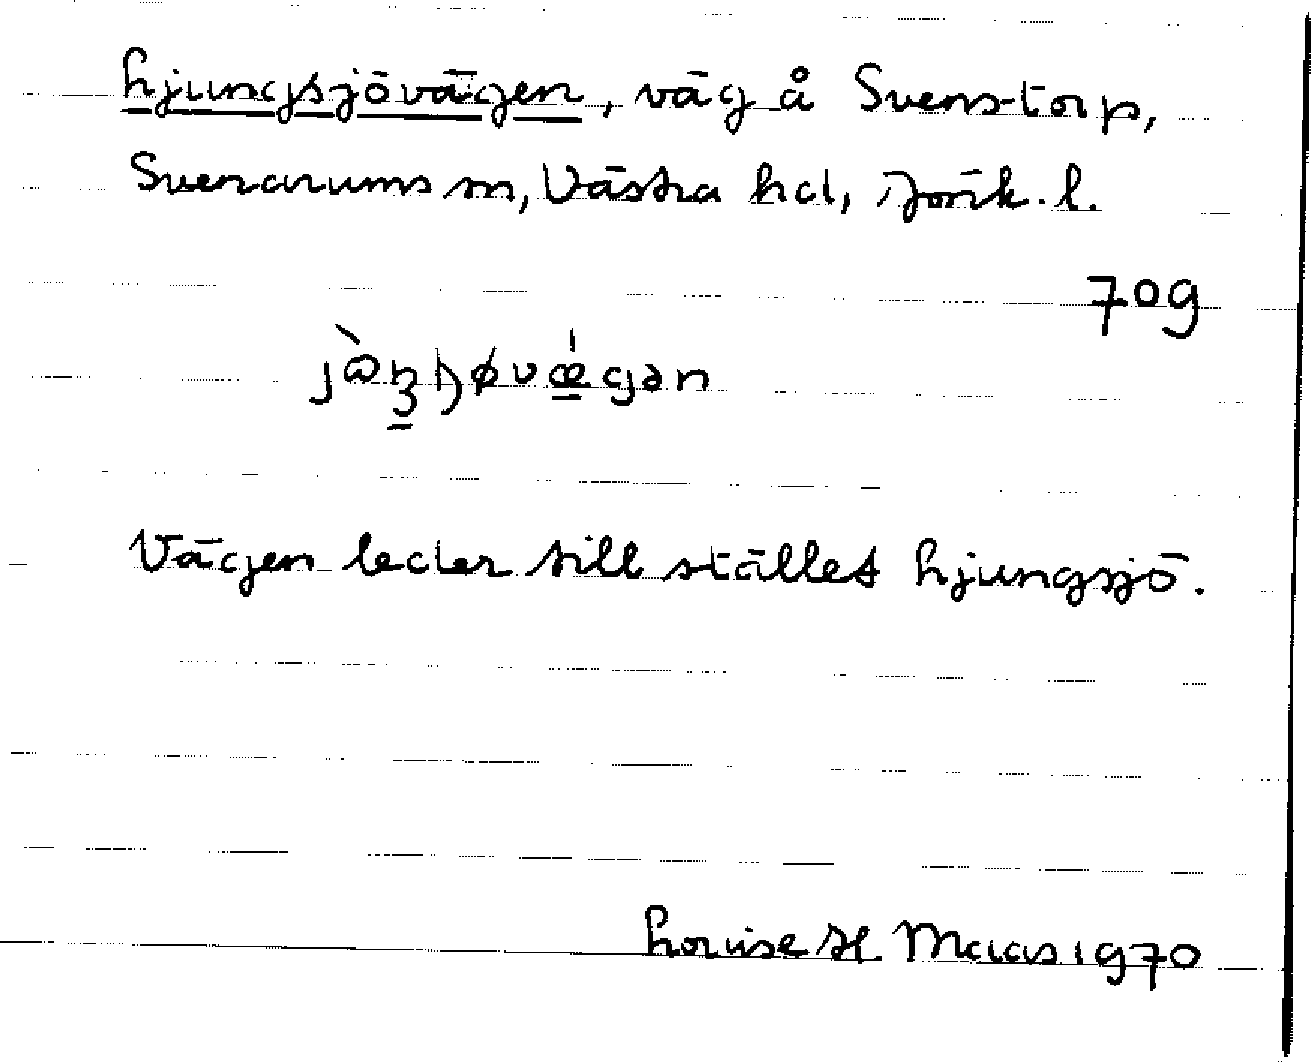 Ljungsjövägen, väg å Svenstorp,
Svenarums sn, Västra hd, Jönk. l.
709
Vägen leder till stället Ljungsjö.
Louise Maas 1970